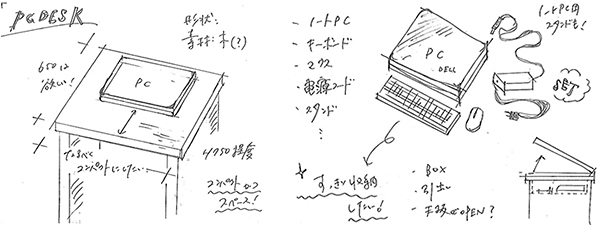 PC DESK
形状:
素材:木(?)
650は
欲しい!
PC
なるべく
コンパクトにしたい
450程度
コンパクトかつ
スペース!
- ノートPC
- キーボード
- マウス
- 電源コード
- スタンド
PC
DELL
ノートPC用
スタンドも!
SET
すっきり収納
したい!
- BOX
- 引出し
- 天板がOPEN?